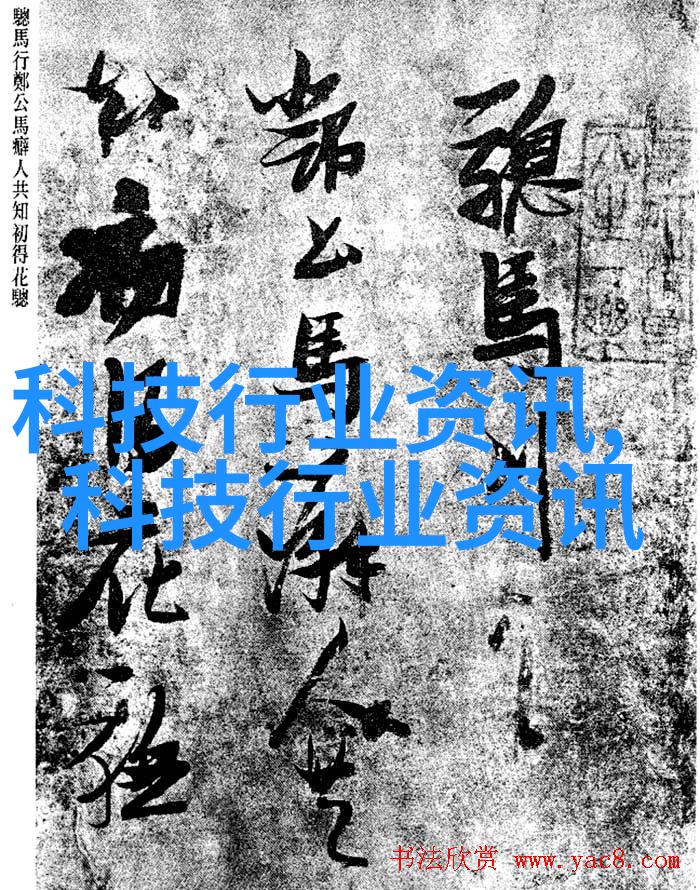 驄馬行
鄭公馬癖人共
知初得花驄
驄馬行鄭公馬癖人共知初得花驄
科技行业资讯,
科技行业资讯
书法欣赏 www.yac8.com